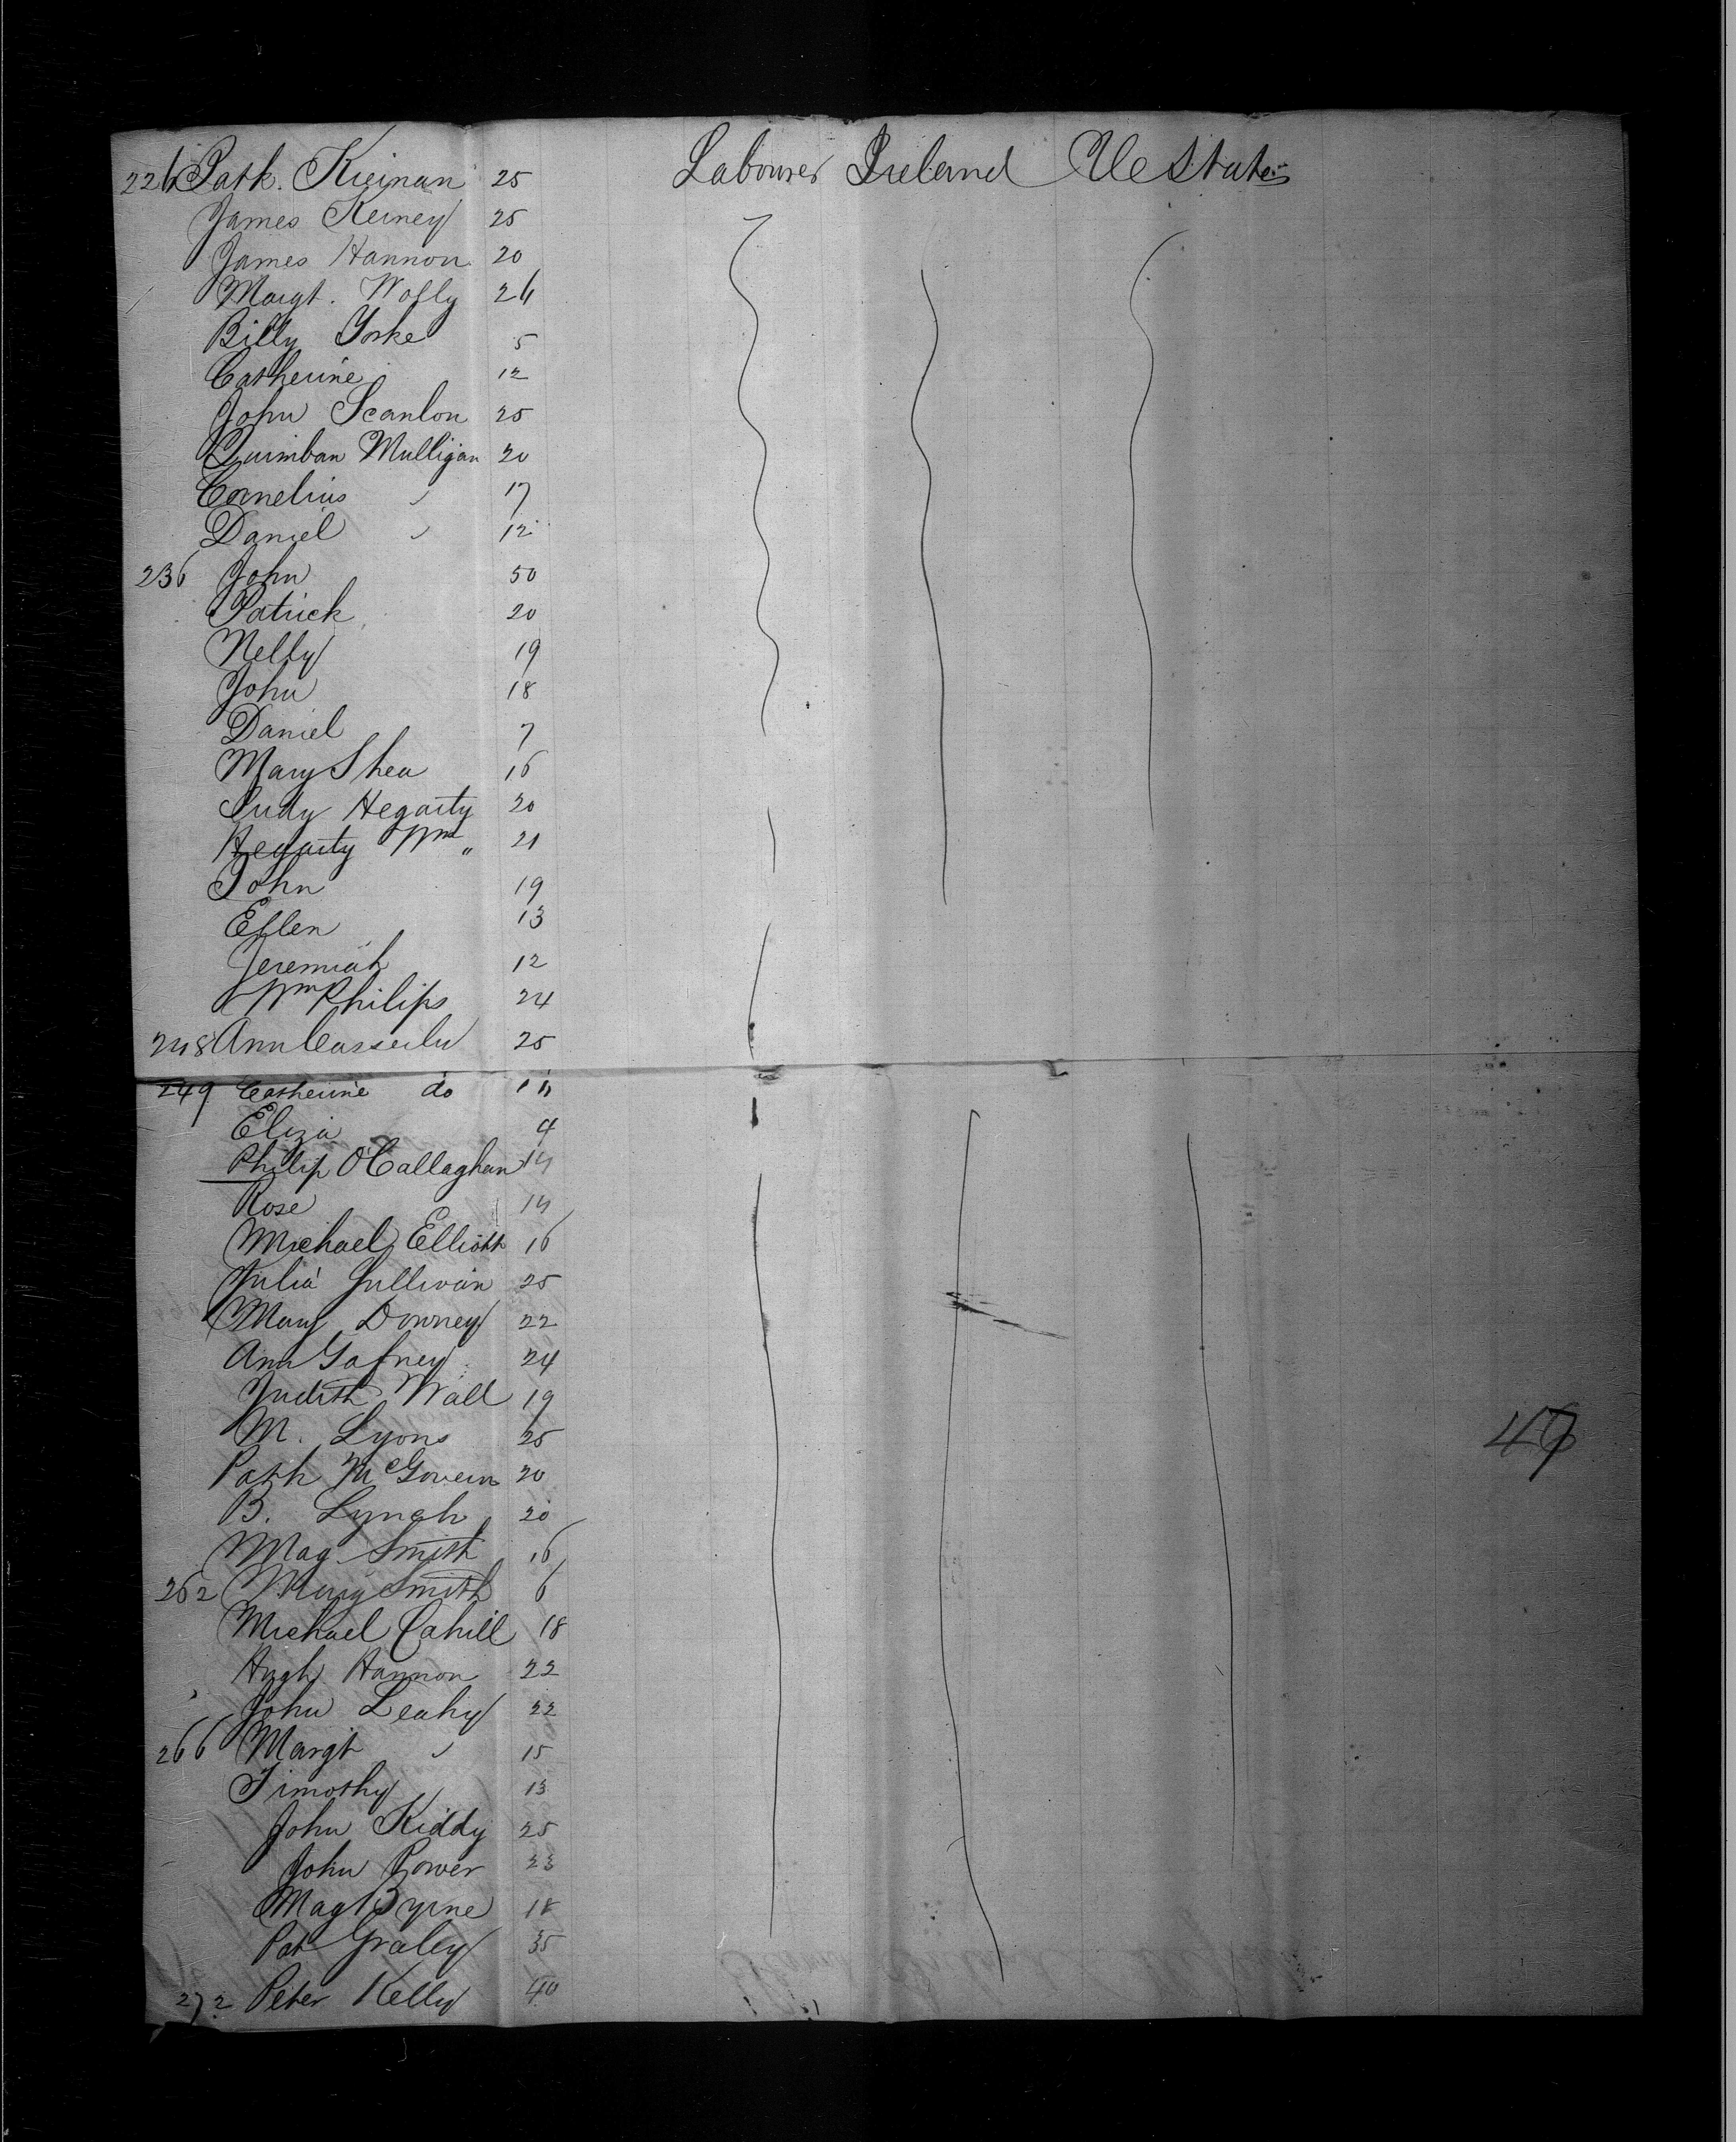 226 Patk. Kiernan 25 Labourer Ireland U States
James Kerney 25
James Hannon 20
Margt. Wolly 26
Billy Yorke 5
Catherine 12
John Scanlon 25
Quimban Mulligan 20
Cornelius " 17
Daniel " 12
236 John 50
Patrick 20
Nelly 19
John 18
Daniel 7
Mary Shea 16
Judy Hegarty 20
Hegarty Wm " 21
John 19
Ellen 13
Jeremiah 12
Wm Philips 24
248 Ann 25
249 Catherine do 11
Eliza 4
Philip O'Callaghan 14
Rose 14
Michael Elliott 16
Julia Sullivan 25
Mary Downey 22
Ann Gafney 24
Judith Wall 19
M. Lyons 25
Patk McGovern 20
B. Lynch 20
Mag Smith 16
262 Mary Smith 6
Michael Cahill 18
Hugh Hannon 22
John Leahy 22
266 Margt " 15
Timothy 13
John Kiddy 25
John Power 23
Mag Byrne 18
Pat Graley 35
272 Peter Kelly 40